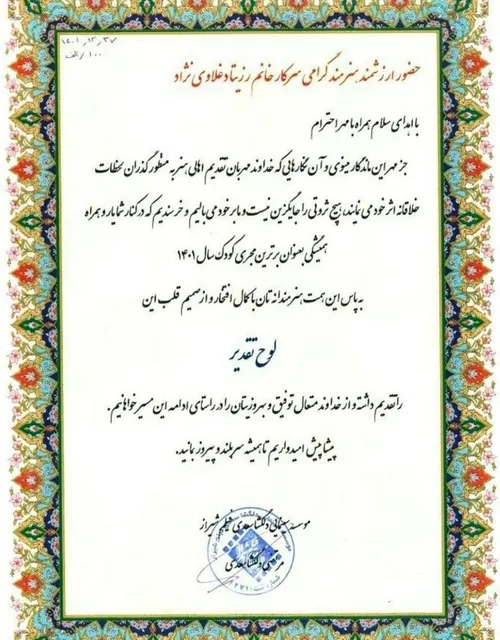 ۱۴۰۱,۱۲,۲۷
۱۰۰/الف
حضور ارزشمند هنرمند گرامی سرکار خانم رزیتا دغلاوی نژاد
با اهدای سلام همراه با مهر احترام
جز مهر این ماندگار مینوی و آن نگارهایی که خداوند مهربان تقدیم اهالی هنر به منظور گذران لحظات
خلاقانه اثر خود می نمایند، هیچ ثروتی را جایگزین نیست و ما بر خود می بالیم و خرسندیم که در کنار شما یار و همراه
همیشگی بعنوان برترین مجری کودک سال ۱۴۰۱
به پاس این همت هنرمندانه تان با کمال افتخار و از صمیم قلب این
لوح تقدیر
را تقدیم داشته و از خداوند متعال توفیق و بهروزیتان را در راستای ادامه این مسیر خواهانیم.
پیشاپیش امیدواریم تا همیشه سربلند و پیروز بمانید.
موسسه سینمایی دلگشا سعدی فیلم شیراز
مرتضی دلگشا سعدی